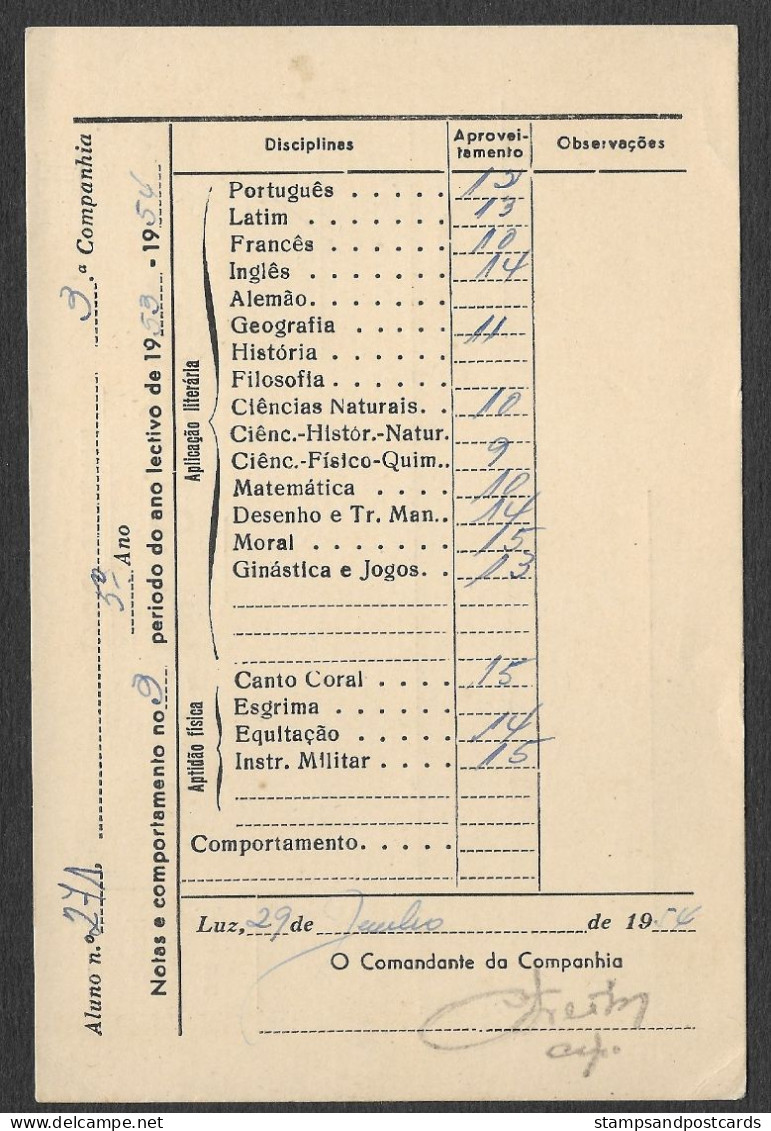 Aluno n.º 271, 3.ª Companhia
5º Ano
Notas e comportamento no 3 periodo do ano lectivo de 1953-1954
Disciplinas Aprovei-tamento Observações
Aplicação literária
Português . . . . . 12
Latim . . . . . . . 13
Francês . . . . . . 10
Inglês . . . . . . . 14
Alemão. . . . . . .
Geografia . . . . . 11
História . . . . . .
Filosofia . . . . . .
Ciências Naturais. . 10
Ciênc.-Histór.-Natur.
Ciênc.-Físico-Quim.. 9
Matemática . . . . 10
Desenho e Tr. Man.. 14
Moral . . . . . . . 15
Ginástica e Jogos. . 13
Aptidão física
Canto Coral . . . . 15
Esgrima . . . . . .
Equitação . . . . . 14
Instr. Militar . . . . 15
Comportamento. . . . .
Luz, 29 de Junho de 1954
O Comandante da Companhia
cap.
stampsandpostcards